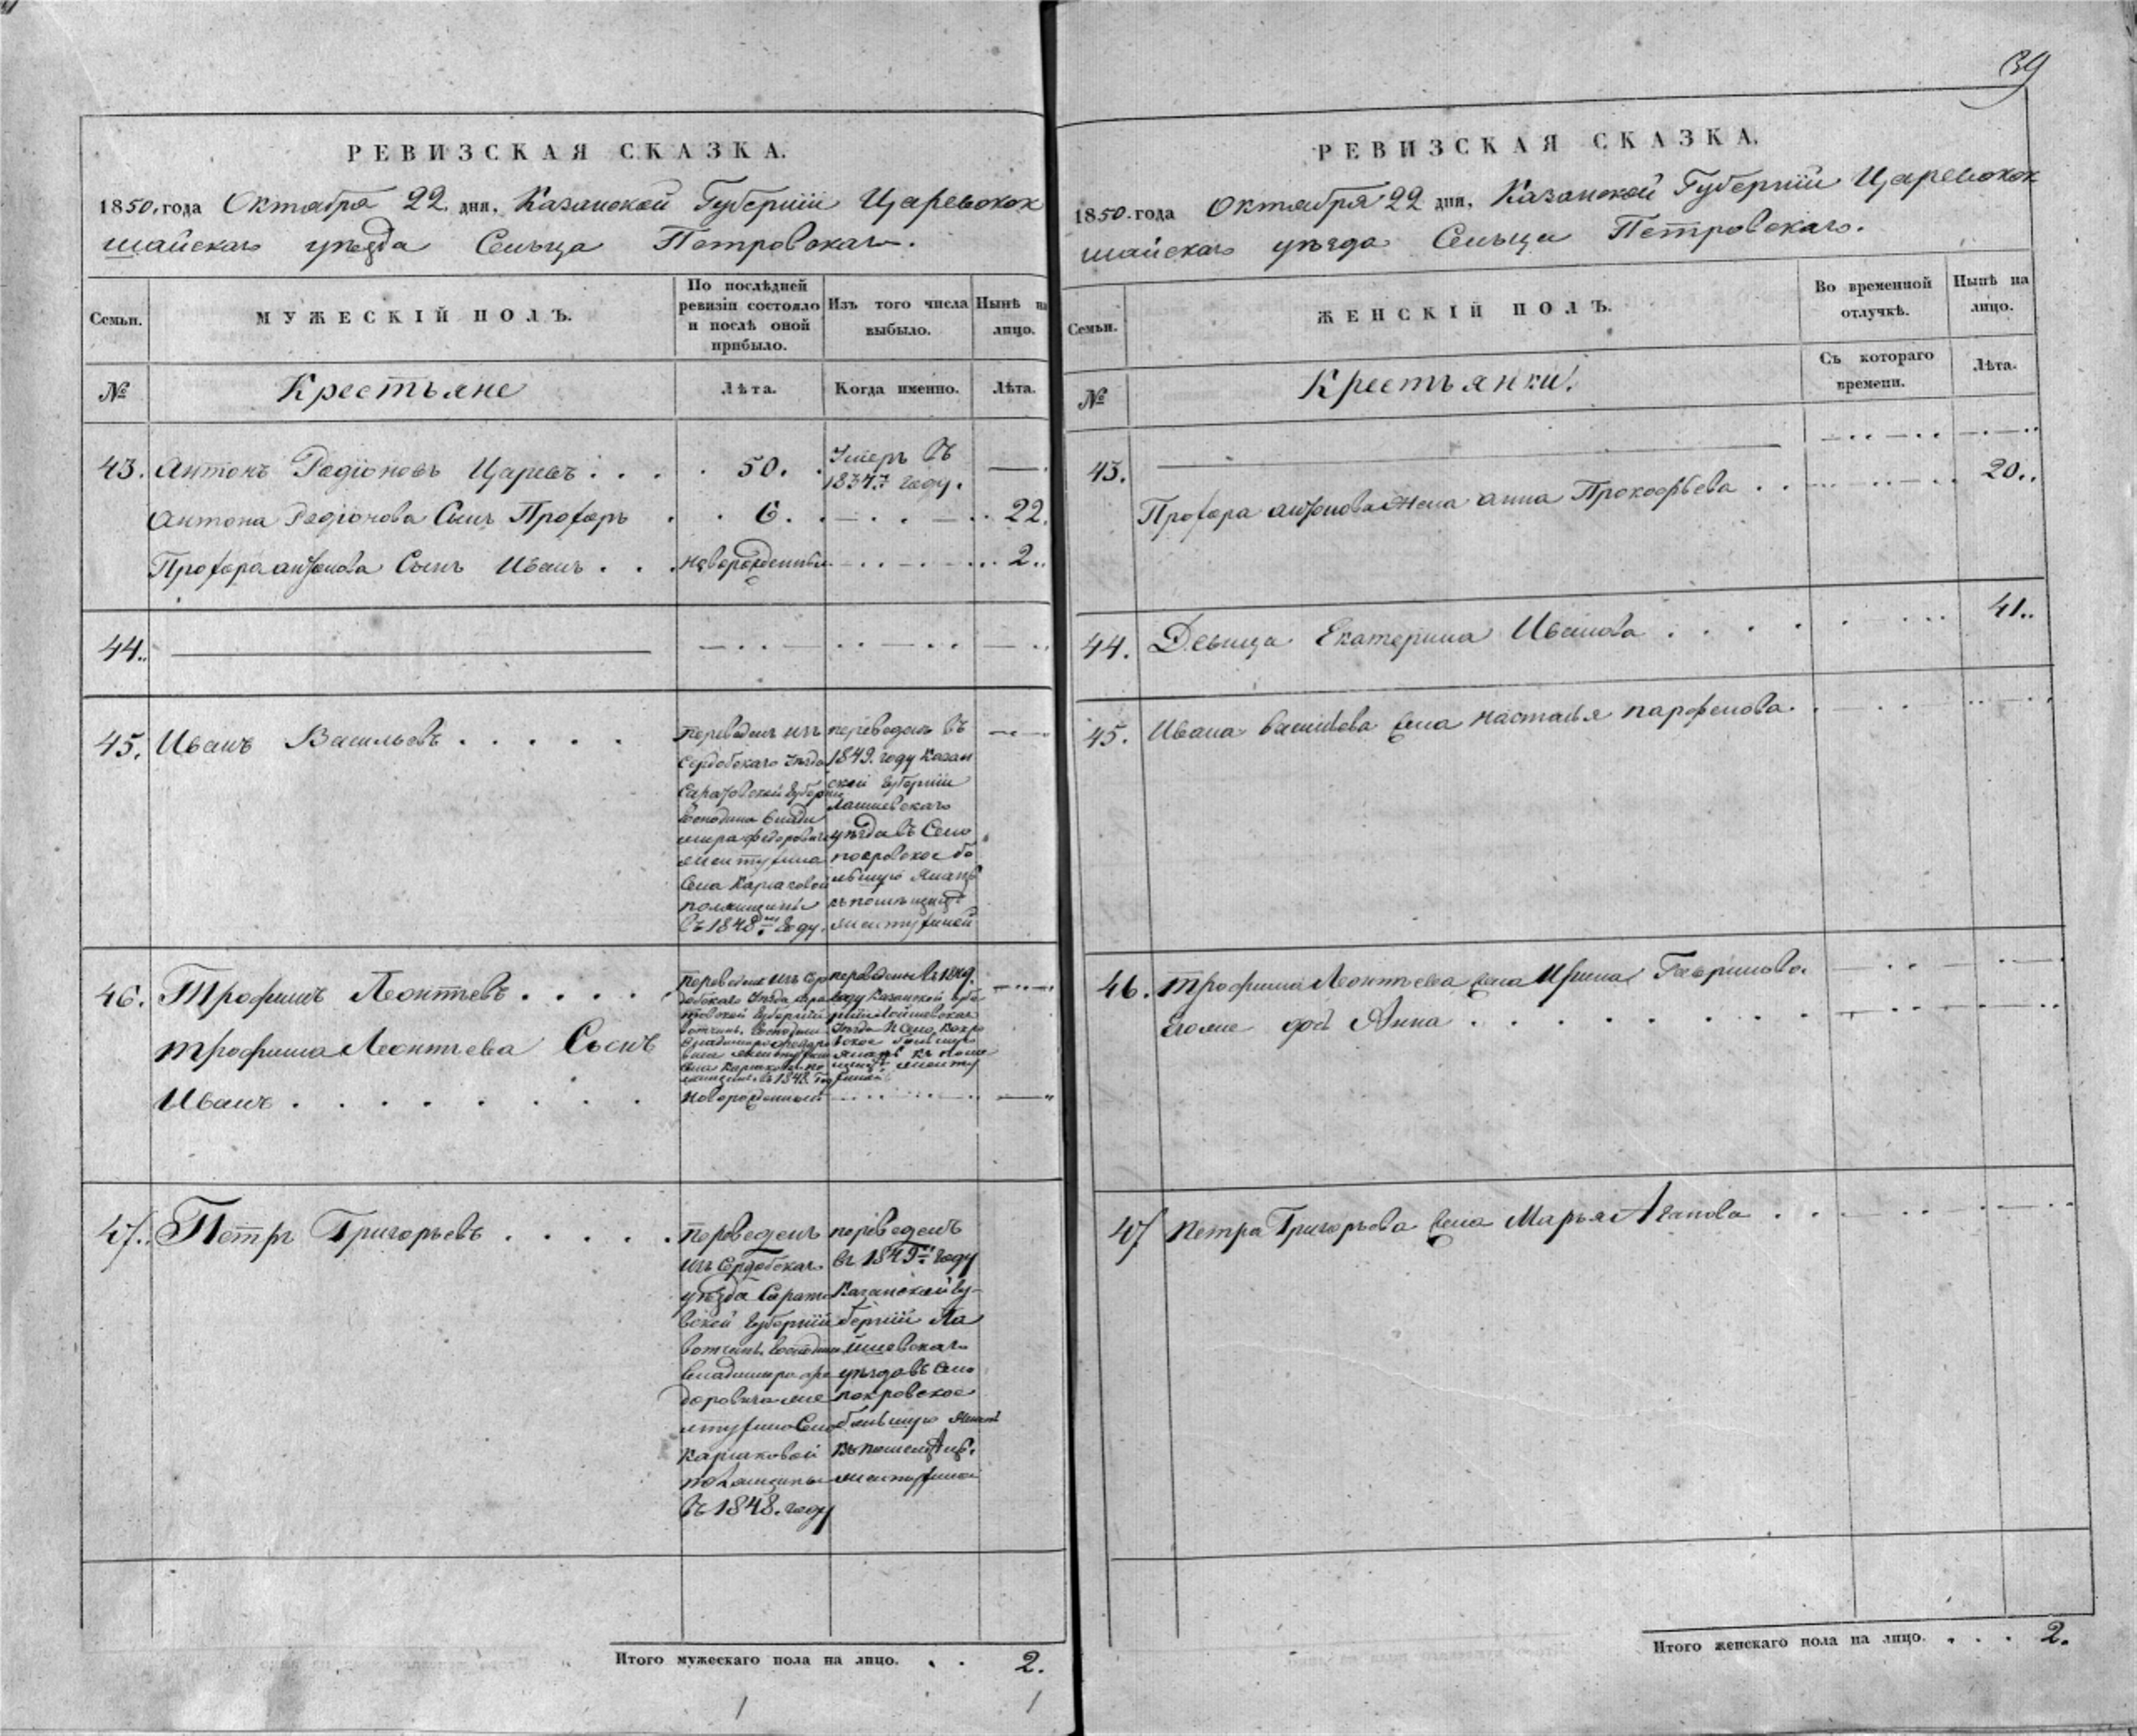 РЕВИЗСКАЯ СКАЗКА.
1850. года Октября 22 дня, Казанской Губернiи Царевокок
шайскаго уѣзда Сельца Петровскаго.
Семьи.
МУЖЕСКIЙ ПОЛЪ.
По послѣдней
ревизiи состояло
и послѣ оной
прибыло.
Изъ того числа
выбыло.
Нынѣ на
лицо.
№
Крестьяне
Лѣта.
Когда именно.
Лѣта.
43. Антонъ Родiоновъ Царевъ . . . 50. Умеръ въ
1834. году.
Антона Родiонова Сынъ Прохоръ . . 6. 22.
Прохора антонова Сынъ Иванъ . . . новорожденный 2..
44..
45. Иванъ Васильевъ . . . . .
переведенъ изъ
Сердобскаго Уезда
Саратовской Губернiи
Господина Влади
мира Федоровича
Ментухина
Села Каргаковой
полянщины
Въ 1848 году.
переведенъ въ
1849. году Казан
ской Губернiи
Лаишевскаго
уѣзда въ Село
покровское бо
льшую Яланъ
къ помѣщицѣ
Ментухиной
46. Трофимъ Леонтьевъ . . . .
Трофима Леонтьева Сынъ
Иванъ . . . . . . . .
переведенъ изъ Сер
добскаго Уезда Сара
товской Губернiи
вотчины Господина
Владимира Федоро
вича Ментухина
Села Каргаковой по
лянщины въ 1848. Году
новорожденный
переведены въ 1849.
году Казанской Губе
рнiи Лаишевскаго
Уѣзда в Село Покро
вское Большую
Яланъ къ поме
щицѣ Менту
хиной
47. Петръ Григорьевъ . . . . .
переведенъ
изъ Сердобскаго
уѣзда Сарато
вской Губернiи
вотчины Господина
Владимира Фе
доровича Ме
нтухина Села
Каргаковой
полянщины
Въ 1848. году
переведенъ
въ 1849 году
Казанской Гу-
бернiи Ла
ишевскаго
уѣзда въ село
покровское
большую Яланъ
къ помещицѣ
Ментухиной
Итого мужескаго пола на лицо. . . 2.
39
РЕВИЗСКАЯ СКАЗКА.
1850. года Октября 22 дня, Казанской Губернiи Царевокок
шайскаго уѣзда Сельца Петровскаго.
Семьи.
ЖЕНСКIЙ ПОЛЪ.
Во временной
отлучкѣ.
Нынѣ на
лицо.
№
Крестьянки.
Съ котораго
времени.
Лѣта.
43.
Прохора антонова жена анна Прокофьева . . 20..
44. Девица Екатерина Иванова . . . . 41..
45. Ивана Васильева жена настасья парфенова.
46. Трофима Леонтьева жена Ирина Гаврилова.
Его же дочь Анна . . . . . . . .
47 Петра Григорьева жена Марья Агапова . . .
Итого женскаго пола на лицо. . . . 2.